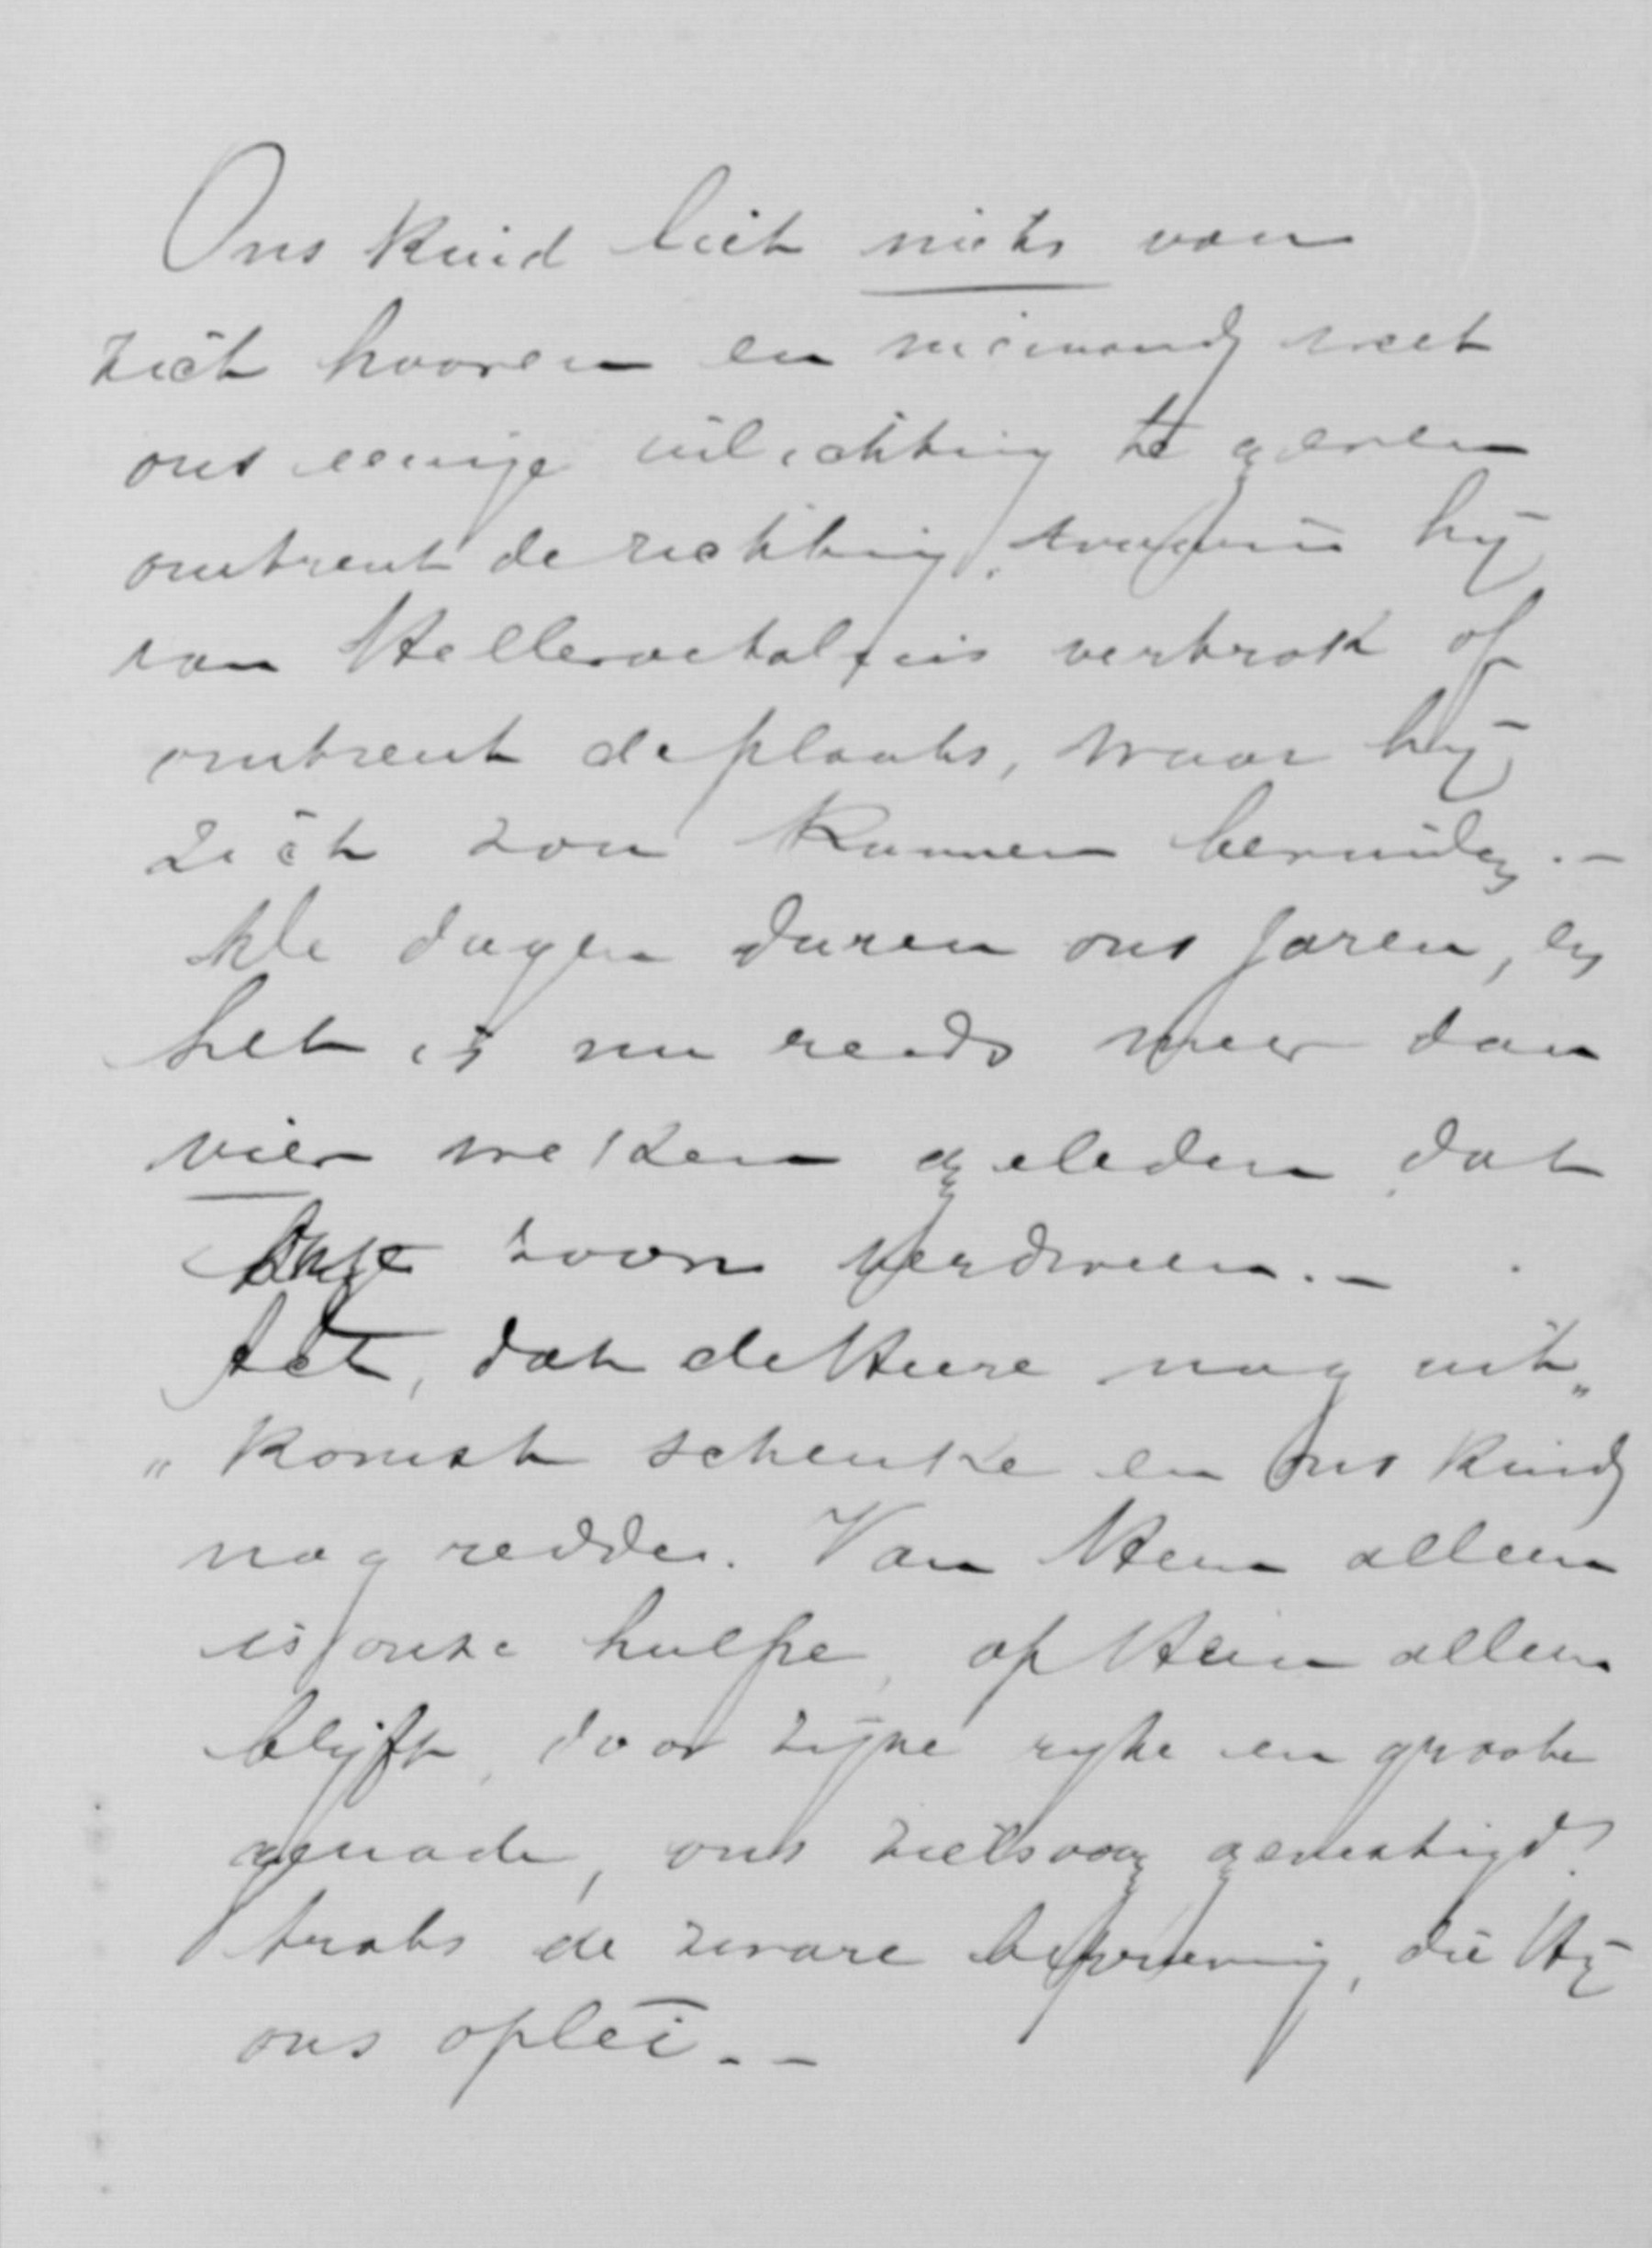 Ons kind liet niets van
zich hooren en niemand weet
ons eenige inlichting te geven
omtrent de richting, waarin hij
van Hellevoetsluis vertrok of
omtrent de plaats, waar hij
zich zou kunnen bevinden.-
De dagen duren ons jaren, en
het is nu reeds meer dan
vier weken geleden dat
onze zoon verdween.-
Ach, dat de Heere nog uit„
„komst schenke en ons kind
nog redde. Van Hem alleen
is onze hulpe, op Hem alleen
blijft, door zijne rijke en groote
genade, ons zielsoog gevestigd
trots de zware beproeving, die Hij
ons oplei.-